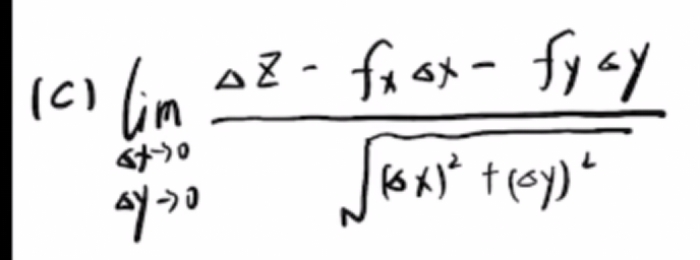 (C) lim Δx→0 Δy→0 (Δz - fx Δx - fy Δy) / √((Δx)² + (Δy)²)